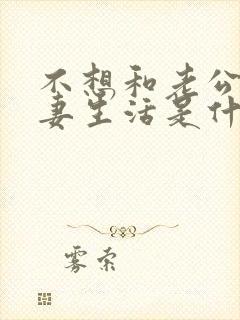 不想和老公
妻生活是什
雾索